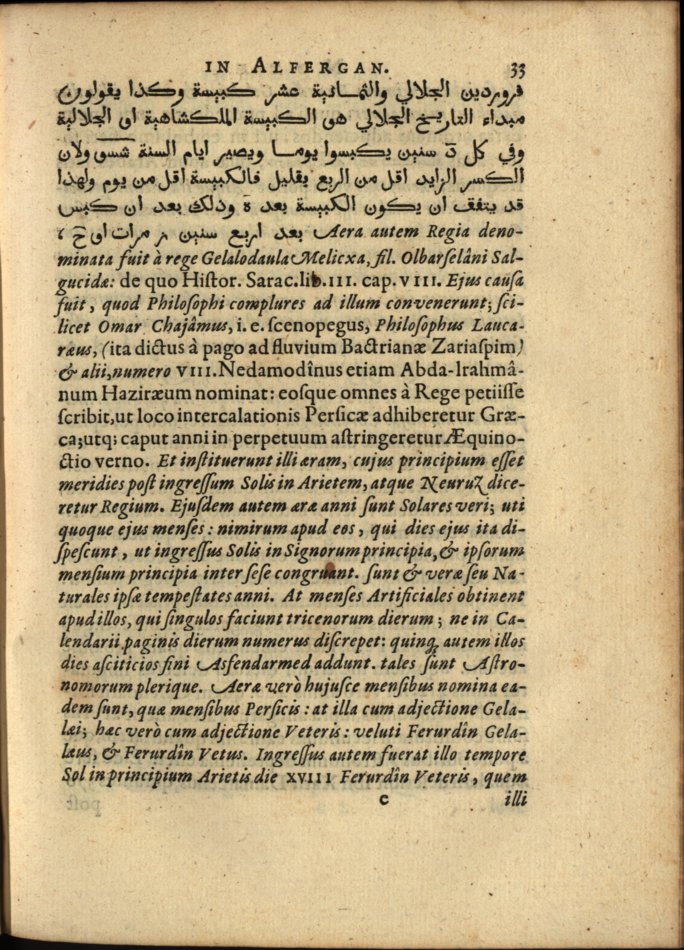 IN ALFERGAN. 33
فروردين الجلالي والثمانية عشر كبيسة وكذا يقولون
مبداء التاريخ الجلالي هى الكبيسة الملكشاهية اى الجلالية
وفي كل د سنين يكبسوا يوما ويصير ايام السنة شسو ولان
الكسر الزايد اقل من الربع بقليل فالكبيسة اقل من يوم ولهذا
قد يتفق ان يكون الكبيسة بعد ه وذلك بعد ان كبس
بعد اربع سنين ز مرات اى ح ، Aera autem Regia deno-
minata fuit à rege Gelalodaula Melicxa, fil. Olbarſelâni Sal-
gucidæ: de quo Hiſtor. Sarac. lib. III. cap. VIII. Ejus cauſa
fuit, quod Philoſophi complures ad illum convenerunt; ſci-
licet Omar Chajâmus, i. e. ſcenopegus, Philoſophus Lauca-
ræus, (ita dictus à pago ad fluvium Bactrianæ Zariaſpim)
& alii, numero VIII. Nedamodînus etiam Abda-lrahmâ-
num Haziræum nominat: eoſque omnes à Rege petiiſſe
ſcribit, ut loco intercalationis Perſicæ adhiberetur Græ-
ca; utq; caput anni in perpetuum aſtringeretur Æquino-
ctio verno. Et inſtituerunt illi æram, cujus principium eſſet
meridies poſt ingreſſum Solis in Arietem, atque Neuruz dice-
retur Regium. Ejuſdem autem æræ anni ſunt Solares veri; uti
quoque ejus menſes: nimirum apud eos, qui dies ejus ita di-
ſpeſcunt, ut ingreſſus Solis in Signorum principia, & ipſorum
menſium principia inter ſeſe congruant. ſunt & veræ ſeu Na-
turales ipſæ tempeſtates anni. At menſes Artificiales obtinent
apud illos, qui ſingulos faciunt tricenorum dierum; ne in Ca-
lendarii paginis dierum numerus diſcrepet: quinq; autem illos
dies aſciticios fini Asfendarmed addunt. tales ſunt Aſtro-
nomorum plerique. Aeræ verò hujuſce menſibus nomina ea-
dem ſunt, quæ menſibus Perſicis: at illa cum adjectione Gela-
læi; hæc verò cum adjectione Veteris: veluti Ferurdîn Gela-
læus, & Ferurdîn Vetus. Ingreſſus autem fuerat illo tempore
Sol in principium Arietis die XVIII Ferurdîn Veteris, quem
c illi